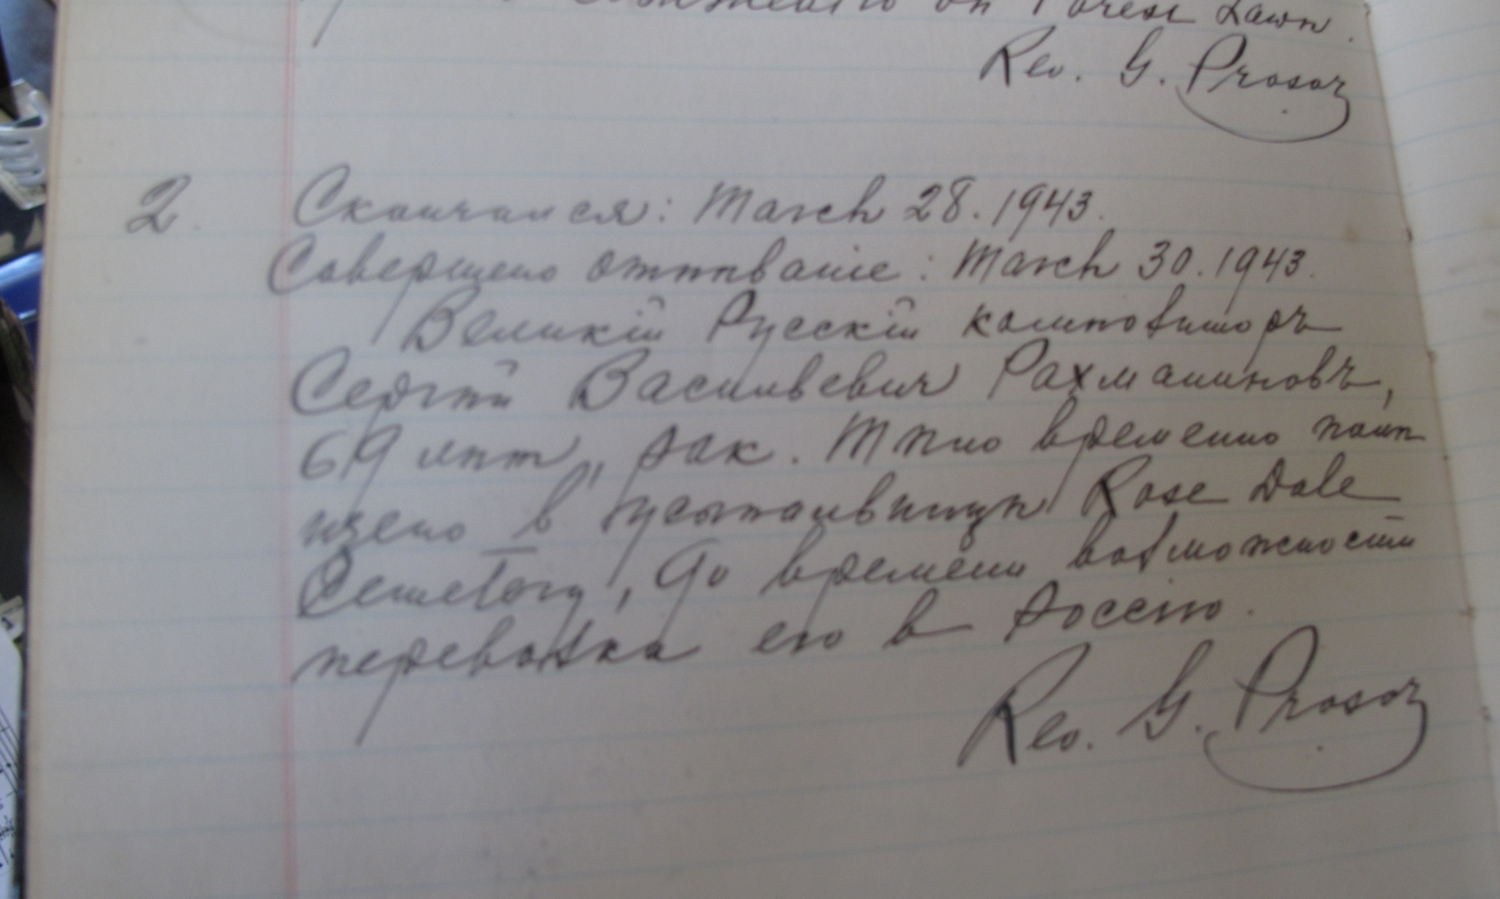 on Forest Lawn.
Rev. G. Prosor
2. Скончался: March 28. 1943.
Совершено отпѣваніе: March 30. 1943.
Великій Русскій композиторъ
Сергѣй Васильевич Рахманиновъ,
69 лѣт, рак. Тѣло временно помѣ
щено в усыпальницу Rose Dale
Cemetery, до времени возможности
перевозка его в Россію.
Rev. G. Prosor